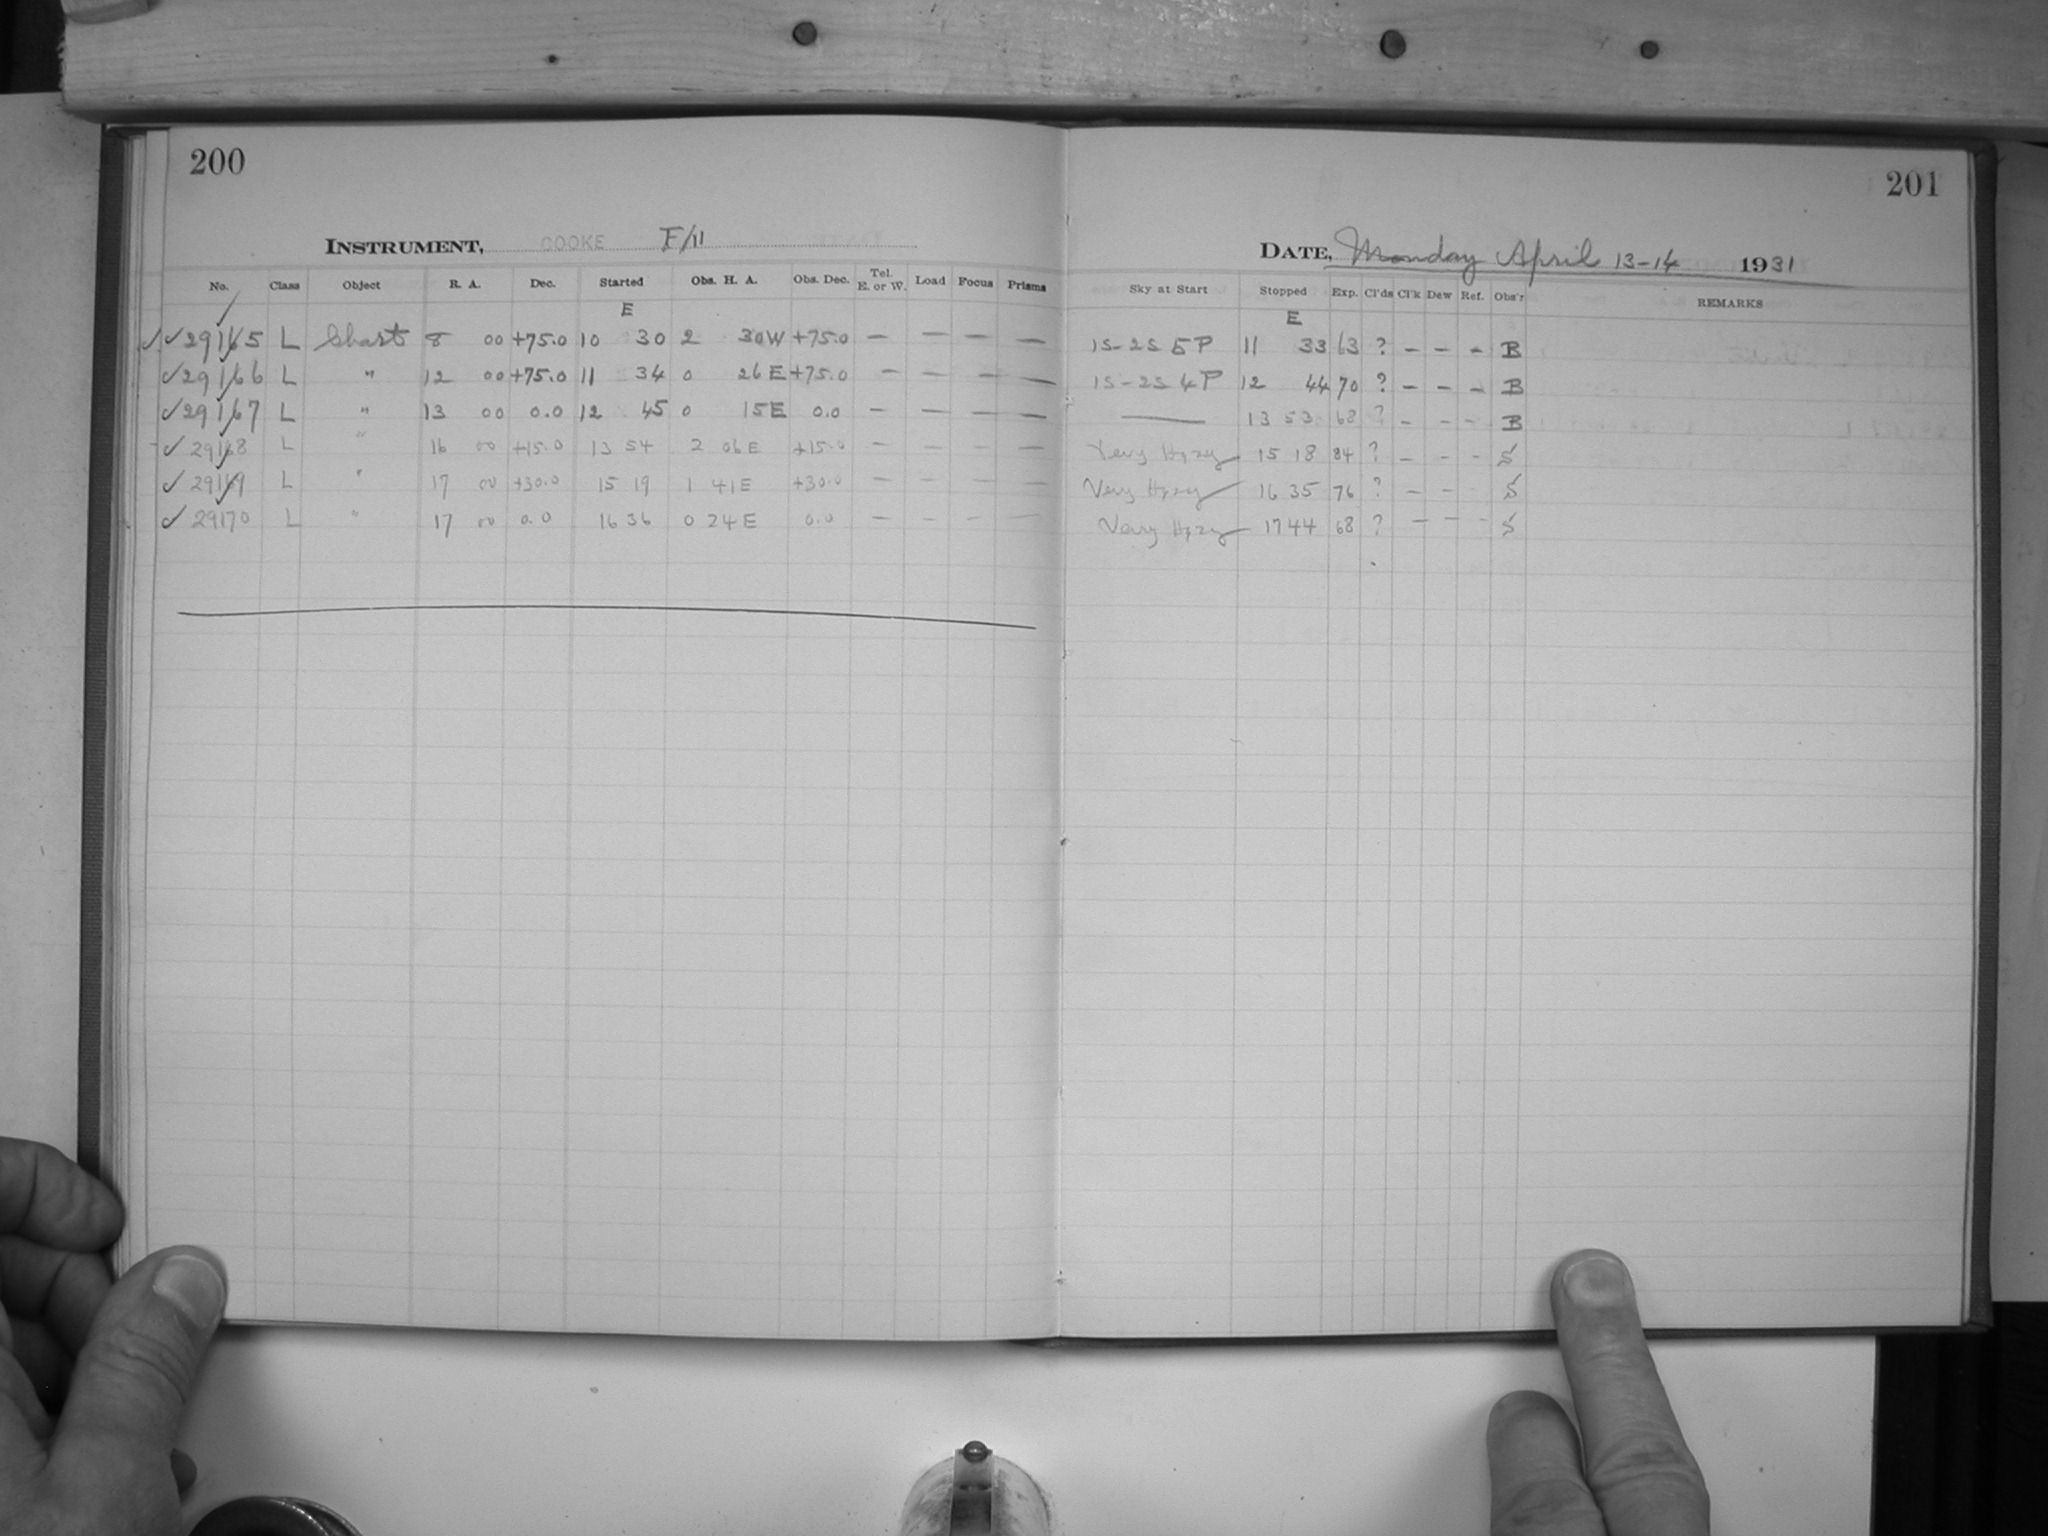 200
INSTRUMENT, COOKE F/11
No. Class Object R. A. Dec. Started Obs. H. A. Obs. Dec. Tel. E. or W. Load Focus Prisms
E
✓✓29165 L Chart 8 00 +75.0 10 30 2 30W +75.0 — — — —
✓29166 L " 12 00 +75.0 11 34 0 26E +75.0 — — — —
✓29167 L " 13 00 0.0 12 45 0 15E 0.0 — — — —
✓29168 L " 16 00 +15.0 13 54 2 06E +15.0 — — — —
✓29169 L " 17 00 +30.0 15 19 1 41E +30.0 — — — —
✓29170 L " 17 00 0.0 16 36 0 24E 0.0 — — — —
201
DATE, Monday April 13-14 1931
Sky at Start Stopped Exp. Cl'ds Cl'k Dew Ref. Obs'r REMARKS
E
1S-2S 5P 11 33 63 ? — — — B
1S-2S 4P 12 44 70 ? — — — B
—— 13 53 68 ? — — — B
Very Hazy 15 18 84 ? — — — S
Very Hazy 16 35 76 ? — — — S
Very Hazy 17 44 68 ? — — — S